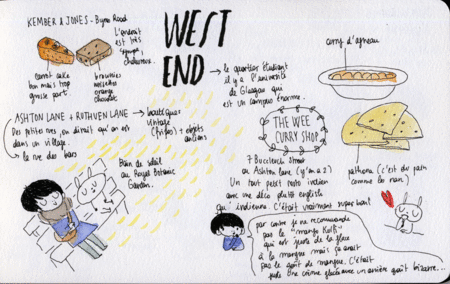 KEMBER & JONES - Byres Road
L'endroit
est très
sympa,
chaleureux.
carrot cake
bon mais trop
grosse part
brownies
noisettes
orange
chocolat
WEST
END
→ le quartier étudiant
il y a l'université
de Glasgow qui
est un campus énorme.
ASHTON LANE + RUTHVEN LANE →
boutiques
vintage
(fripes) + objets
anciens
Des petites rues, on dirait qu'on est
dans un village.
la rue des bars
Bain de soleil
au Royal Botanic
Garden.
curry d'agneau
THE WEE
CURRY SHOP
7 Buccleuch Street
ou Ashton Lane (y'en a 2)
Un tout petit resto indien
avec une déco plutôt english
qu'indienne. C'était vraiment super bon!
(c'est du pain
comme les nan)
par contre je ne recommande
pas le "mango Kulfi"
qui est juste de la glace
à la mangue mais ça avait
pas le goût de mangue. C'était
juste une crème glacée avec un arrière goût bizarre...